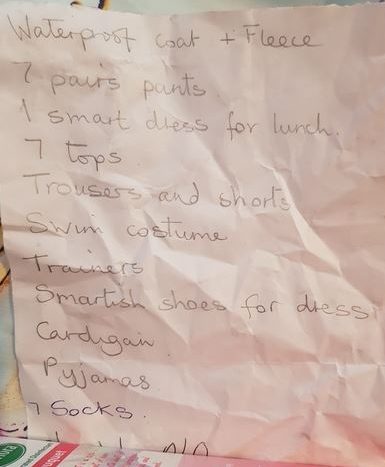 Waterproof coat + Fleece
7 pairs pants.
1 smart dress for lunch.
7 tops
Trousers and shorts
Swim costume
Trainers
Smartish shoes for dress
Cardigan
Pyjamas
7 Socks.